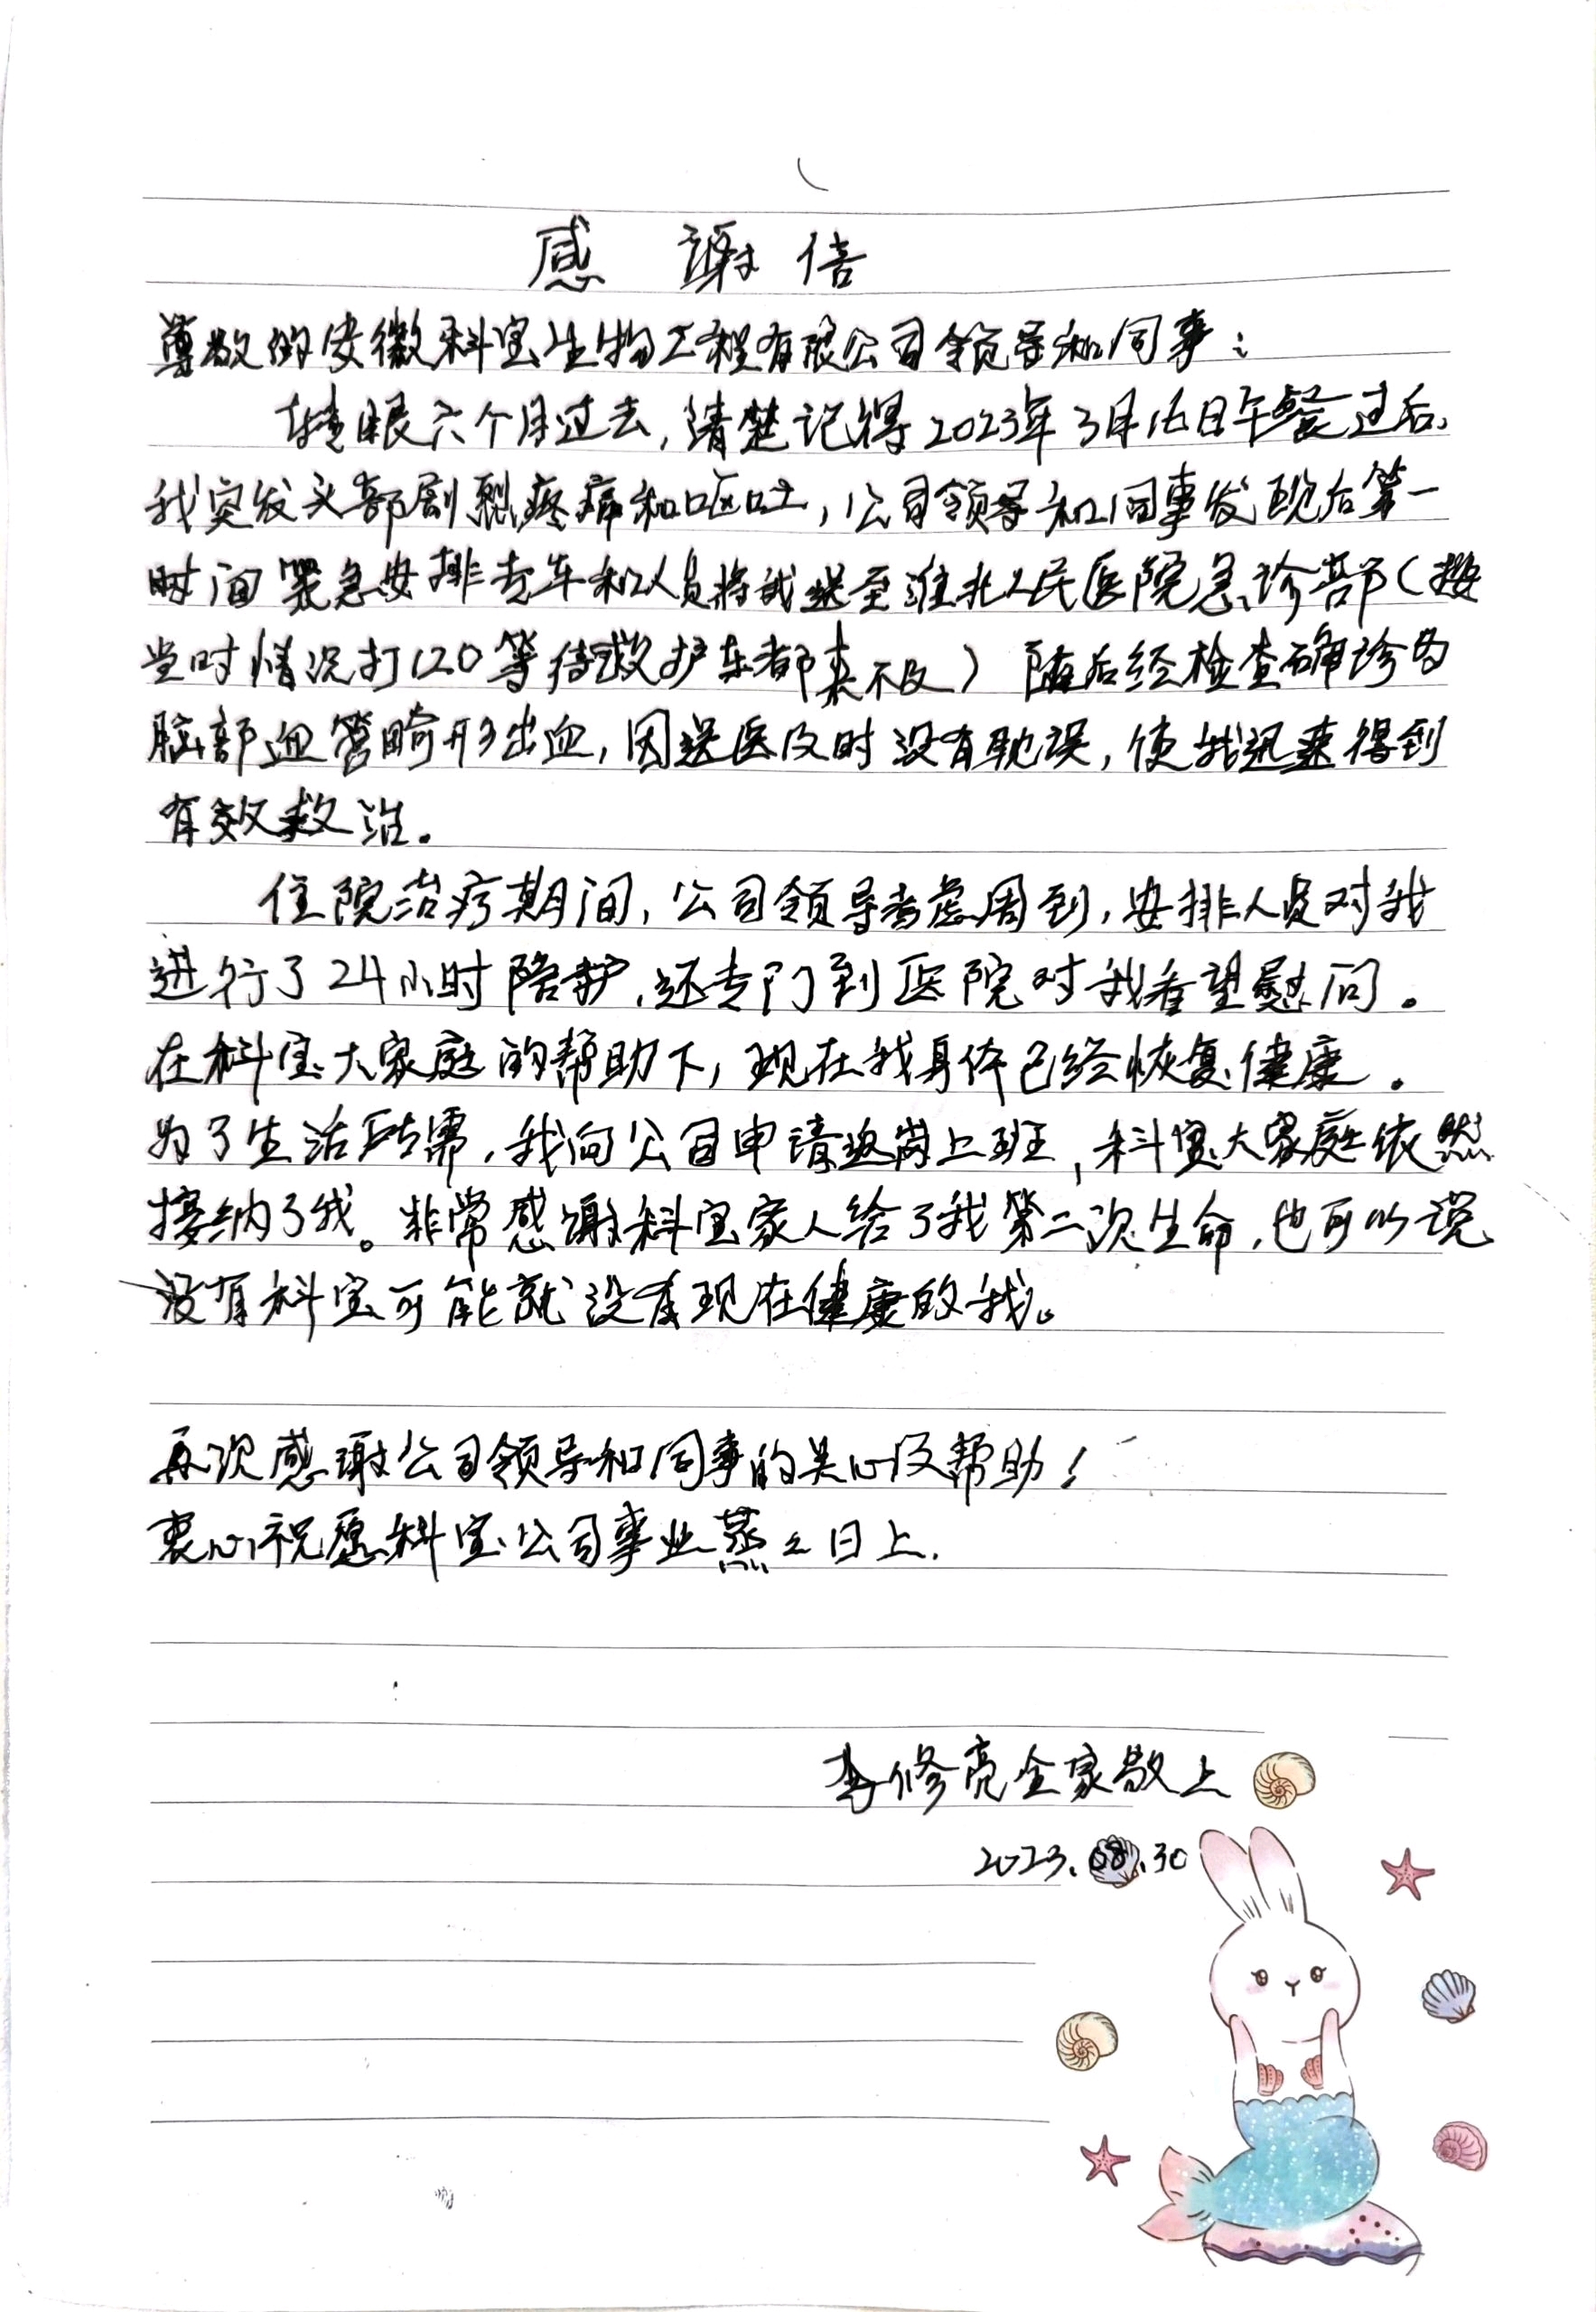 感谢信
尊敬的安徽科宝生物工程有限公司领导和同事：
转眼六个月过去，清楚记得2023年3月16日午餐过后，
我突发头部剧烈疼痛和呕吐，公司领导和同事发现后第一
时间紧急安排专车和人员将我送至淮北人民医院急诊部（按
当时情况打120等待救护车都来不及）随后经检查确诊为
脑部血管畸形出血，因送医及时没有耽误，使我迅速得到
有效救治。
住院治疗期间，公司领导考虑周到，安排人员对我
进行了24小时陪护，还专门到医院对我看望慰问。
在科宝大家庭的帮助下，现在我身体已经恢复健康。
为了生活所需，我向公司申请返岗上班，科宝大家庭依然
接纳了我。非常感谢科宝家人给了我第二次生命，也可以说
没有科宝可能就没有现在健康的我。
再次感谢公司领导和同事的关心及帮助！
衷心祝愿科宝公司事业蒸々日上．
李修亮全家敬上
2023.08.30